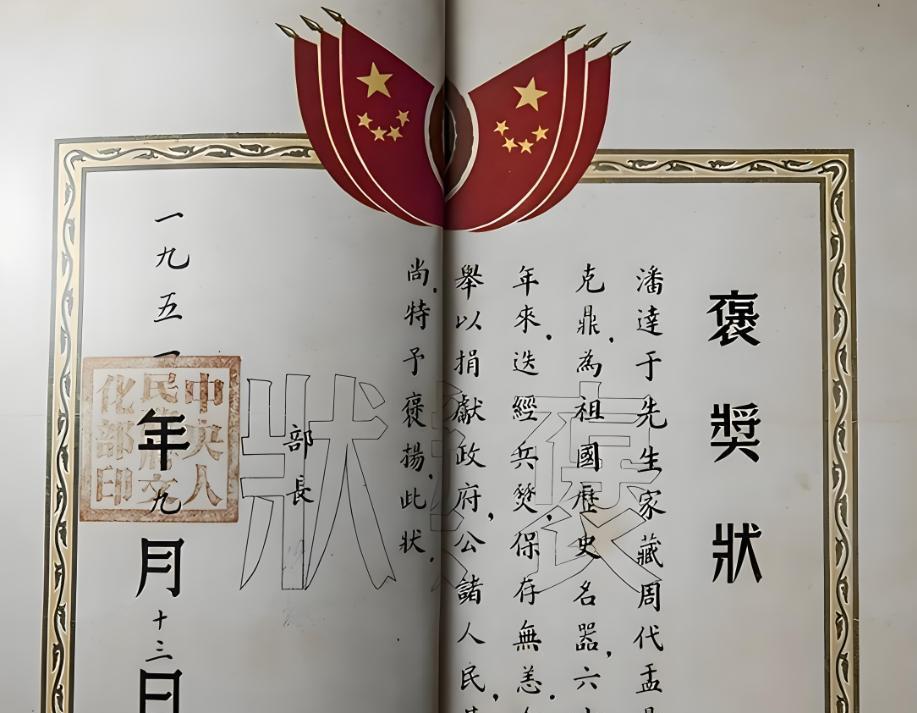 褒奬狀
潘達于先生家藏周代盂
克鼎，為祖國歷史名器，六
年來，迭經兵燹，保存無恙，
舉以捐獻政府，公諸人民，
尚，特予褒揚，此狀。
部長
一九五一年九月十三日
中央人民政府文化部印